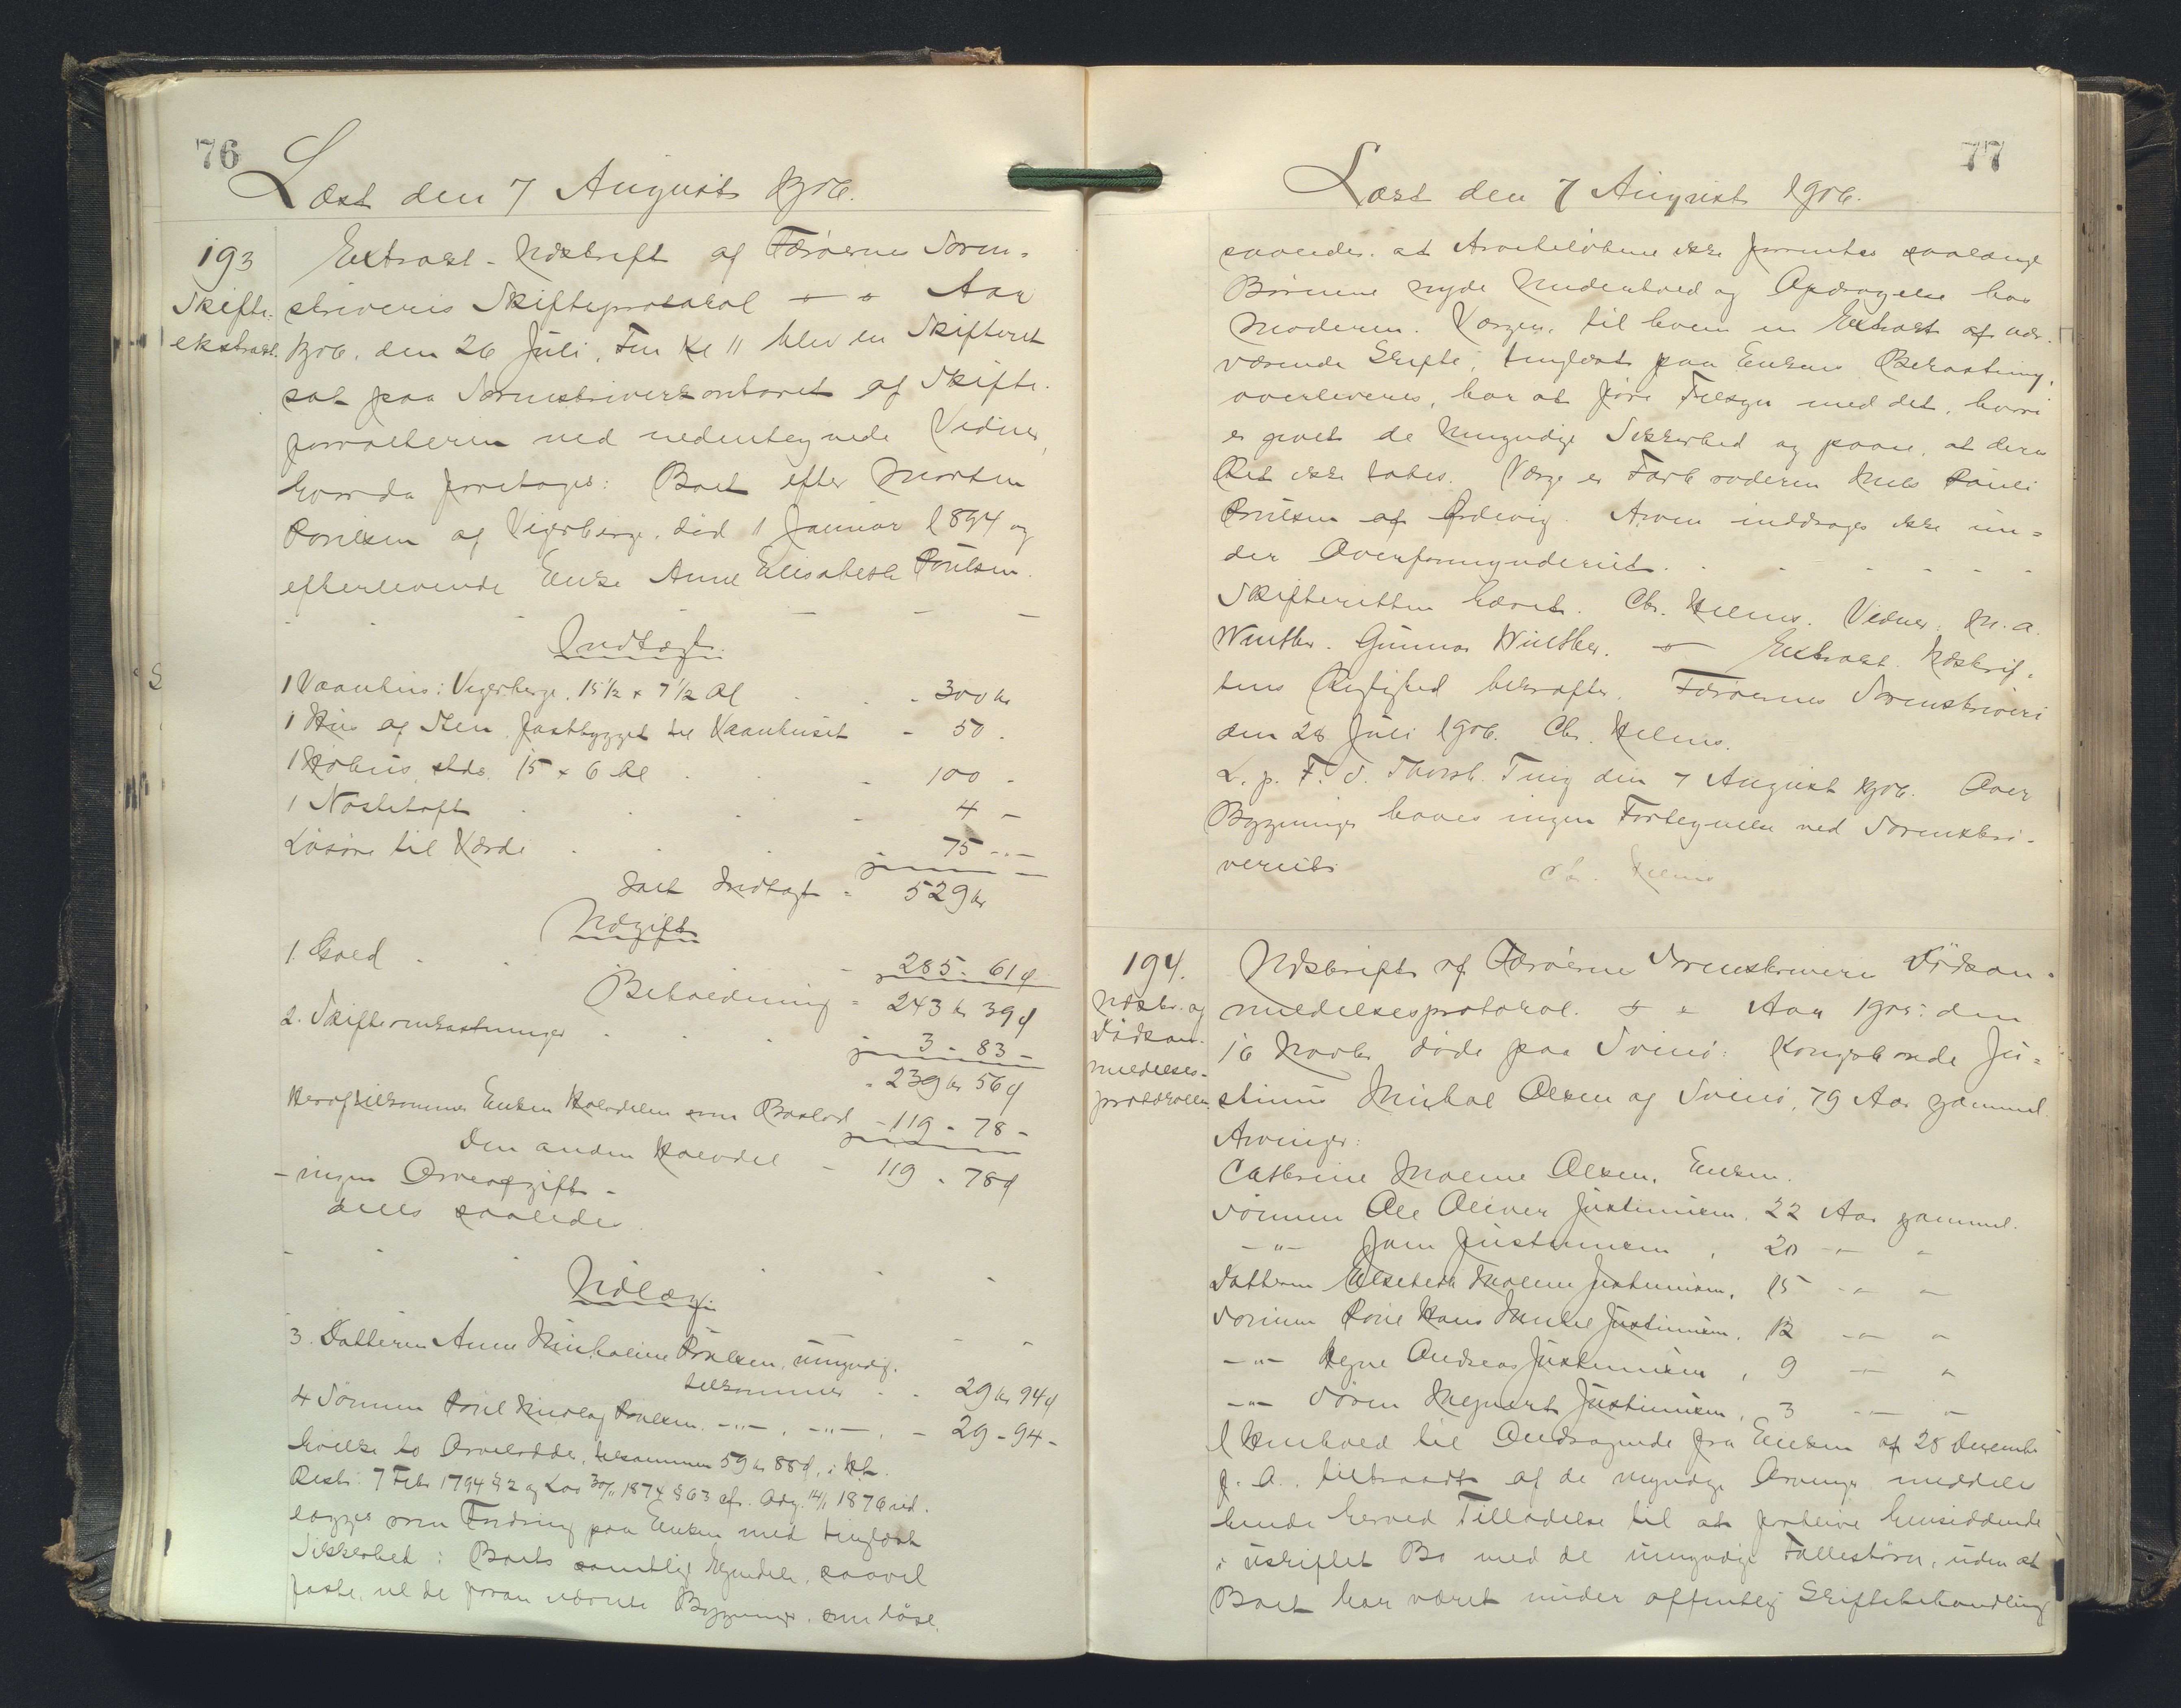 76
Læst den 7 August 1906.
193
Skifte-
ekstrakt.
Extrakt-Udskrift af Færøernes Soren-
skriveris Skifteprotokol — Aar
1906, den 26 Juli, Fm Kl 11 blev en Skifteret
sat paa Sorenskriverkontoret af Skifte-
forvalteren med nedentegnede Vidner,
hvorda foretoges: Boet efter Morten
Poulsen af Vigerberge, död 1 Januar 1894 og
efterlevende Enke Anne Elisabeth Poulsen.
Indtægt.
1 Vaanhus i Vigerberge, 15 1/2 x 7 1/2 Al - 300 kr
1 Hus af Sten fastbygget til Vaanhuset - 50 -
1 Kohus, stds. 15 x 6 Al - 100 -
1 Nöstetoft - 4 -
Lösöre til Værdi 75 - -
Ialt Indtægt = 529 kr
Udgift
1. Gæld - 285 - 61 ø
Beholdning = 243 kr 39 ø
2. Skifteomkostninger 3 - 83 -
- 239 kr 56 ø
Heraf tilkommer Enken Halvdelen som Boslod - 119 - 78 -
Den anden Halvdel - 119 - 78 ø
- ingen Arveafgift -
deles saaledes
Udlæg
3. Datteren Anne Michaline Poulsen, umyndig,
tilkommer - - 29 kr 94 ø
4 Sönnen Poul Nicolaj Poulsen, -"-, -"-, - 29 - 94 -
hvilke to Arvelodder, tilsammen 59 kr 88 ø, i Hht.
Reskr. 7 Febr 1794 § 2 og Lov 30/11 1874 § 63 cfr. Adg. 14/1 1876 ud-
lægges som Fordring paa Enken med tinglæst
Sikkerhed i Boets samtlige Ejendele, saavel
faste, ɔ: de foran nævnte Bygninger, som löse,
77
Læst den 7 August 1906.
saaledes at Arvebeløbene ikke forrentes saalænge
Børnene nyde Underhold og Opdragelse hos
Moderen. Værgen, til hvem en Extrakt af nær-
værende Skifte, tinglæst paa Enkens Bekostning,
overleveres, har at føre Tilsyn med det, hvori
er givet de Umyndige Sikkerhed og paase, at deres
Ret ikke tabes. Værge er Farbroderen Niels Pauli
Poulsen af Ördevig. Arven inddrages ikke un-
der Overformynderiet.
Skifteretten hævet. Chr. Helms. Vidner: M. A.
Winther. Gunnar Winther. — Extrakt-Udskrif-
tens Rigtighed bekræftes. Færøernes Sorenskriveri
den 28 Juli 1906. Chr. Helms.
L. p. F. S. Thorsh. Ting den 7 August 1906. Over
Bygninger haves ingen Fortegnelse ved Sorenskri-
veriet.
Ch. Helms
194.
Udskr. af
Dödsan-
meldelses-
protokollen
Udskrift af Færøernes Sorenskriveris Dödsan-
meldelsesprotokol. — Aar 1905 den
16 Novbr döde paa Svinö: Kongsbonde Ju-
stinus Michal Olsen af Svinö, 79 Aar gammel.
Arvinger:
Cathrine Malene Olsen, Enken.
Sönnen Ole Oliver Justinussen, 22 Aar gammel.
-"- Joen Justinussen, 20 -"- "
Datteren Elsebeth Malene Justinussen, 15 -"- "
Sönnen Poul Hans Michal Justinussen, 12 -"- "
-"- Hejne Andreas Justinussen, 9 -"- "
-"- Sören Mejnert Justinussen, 3 -"- "
I Henhold til Andragende fra Enken af 28 December
f. A., tiltraadt af de myndige Arvinger meddeles
hende herved Tilladelse til at forblive hensiddende
i uskiftet Bo med de umyndige Fællesbörn, uden at
Boet har været under offentlig Skiftebehandling